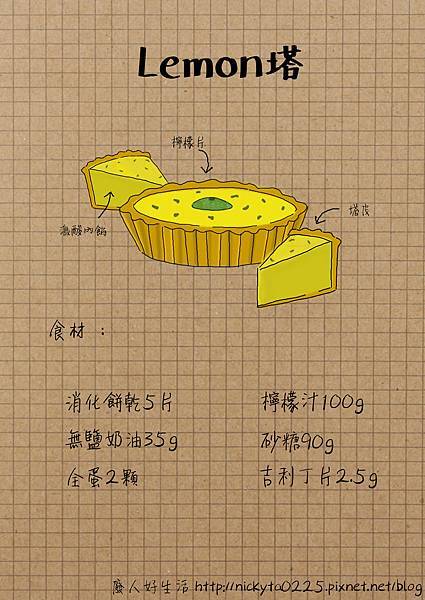 Lemon塔
檸檬片
激酸內餡
塔皮
食材：
消化餅乾5片
檸檬汁100g
無鹽奶油35g
砂糖90g
全蛋2顆
吉利丁片2.5g
廢人好生活 http://nickyto0225.pixnet.net/blog